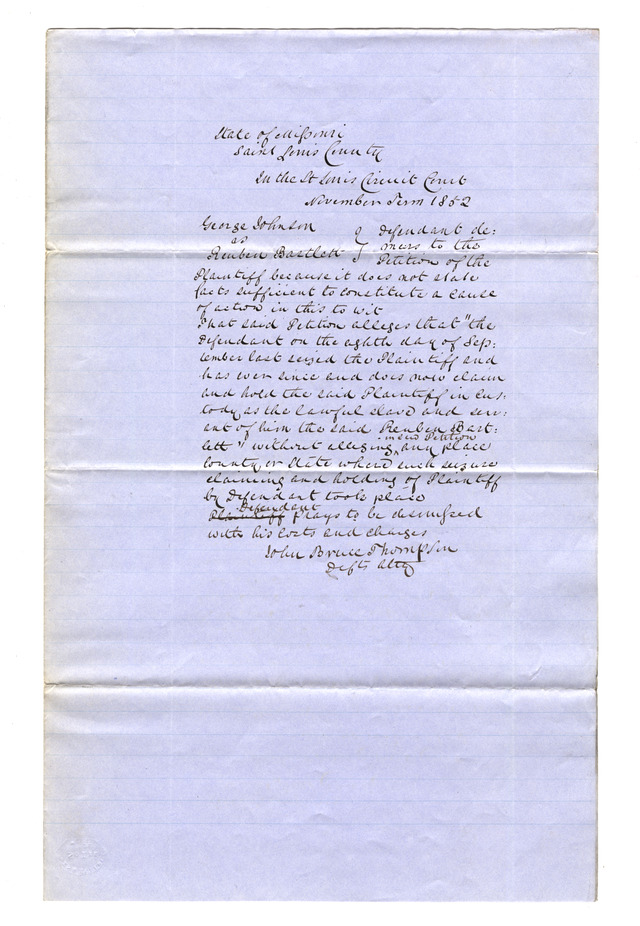 State of Missouri
Saint Louis County
In the St Louis Circuit Court
November Term 1852
George Johnson } Defendant de:
vs } murs to the
Reuben Bartlett } Petition of the
Plaintiff because it does not state
facts sufficient to constitute a cause
of action in this to wit
That said Petition alleges that "the
Defendant on the eighth day of Sep:
tember last seized the Plaintiff and
has ever since and does now claim
and hold the said Plaintiff in cus:
tody as the lawful slave and serv:
ant of him the said Reuben Bart:
lett" without alleging in said Petition any place
County or State where such seizure
claiming and holding of Plaintiff
by Defendant took place
Plaintiff Defendant prays to be dismissed
with his costs and charges
John Bruce Thompson
Defts Atty